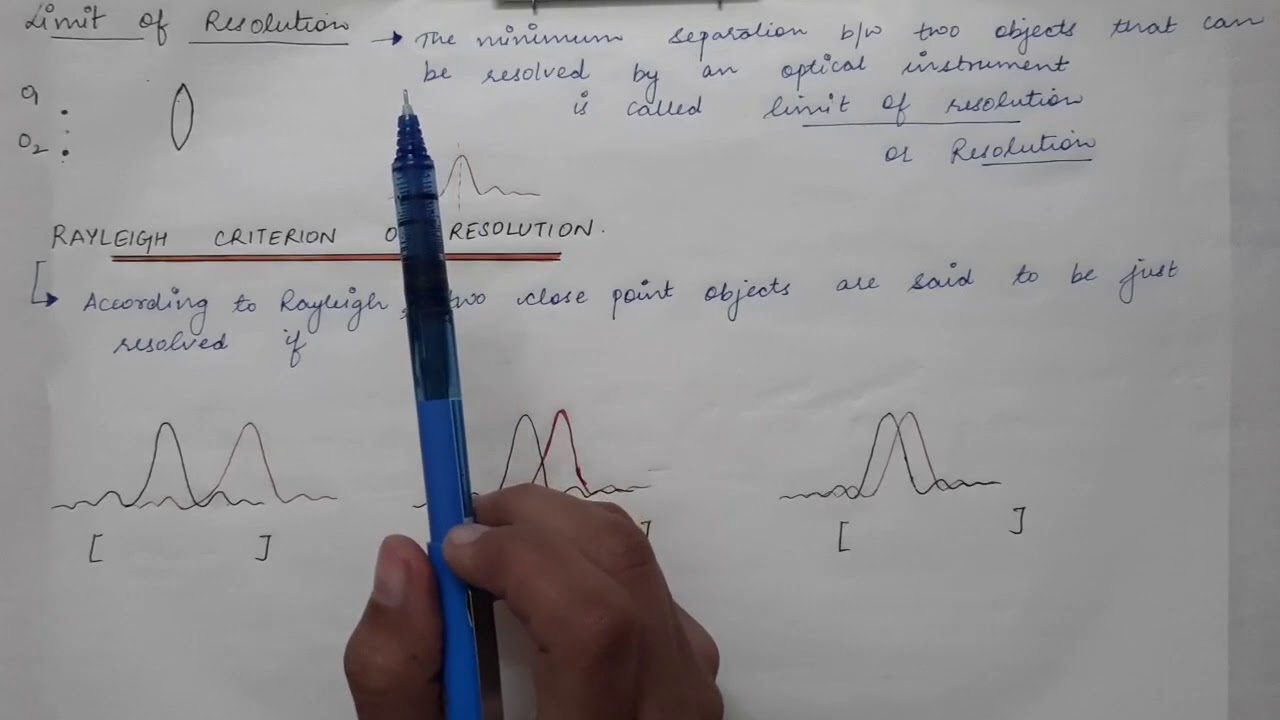 Limit of Resolution → The minimum separation b/w two objects that can
be resolved by an optical instrument
is called limit of resolution
or Resolution
O1
O2
RAYLEIGH CRITERION RESOLUTION.
According to Rayleigh, two close point objects are said to be just
resolved if
[ ] ] [ ]